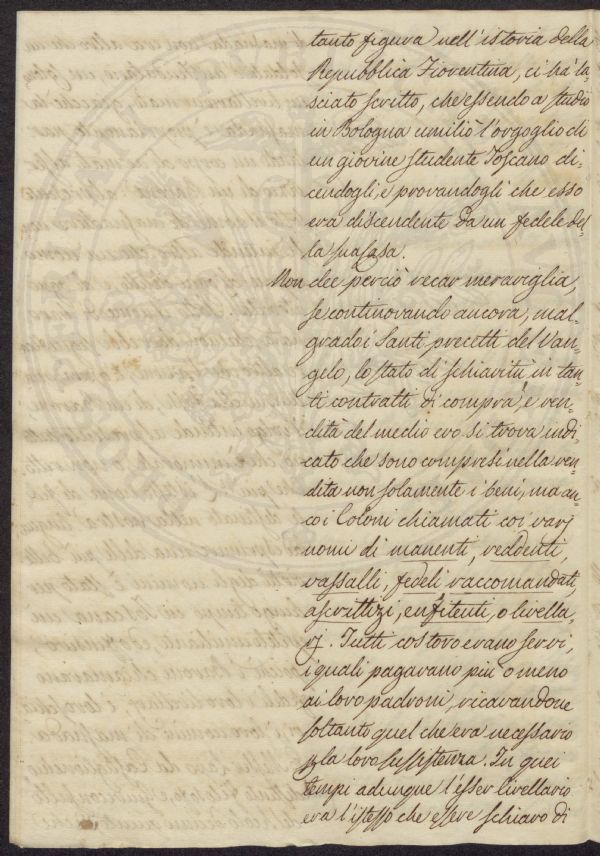 tanto figura nell'istoria della
Repubblica Fiorentina, ci ha la=
sciato scritto, che essendo a studio
in Bologna umiliò l'orgoglio di
un giovine studente Toscano di=
cendogli, e provandogli che esso
era discendente da un fedele del=
la sua Casa.
Non dee perciò recar meraviglia,
se continovando ancora, mal=
grado i Santi precetti del Van=
gelo, lo stato di schiavitù in tan=
ti contratti di compra, e ven=
dità del medio evo si trova indi=
cato che sono compresi nella ven=
dita non solamente i beni, ma an=
co i Coloni chiamati coi varj
nomi di manenti, reddenti,
vassalli, fedeli raccomandati,
ascrittizi, enfitenti, o livella=
rj. Tutti costoro erano servi,
i quali pagavano più o meno
ai loro padroni, ricavandone
soltanto quel che era necessario
p la loro sussistenza. In quei
tempi adunque l'esser livellario
era l'istesso che essere schiavo di